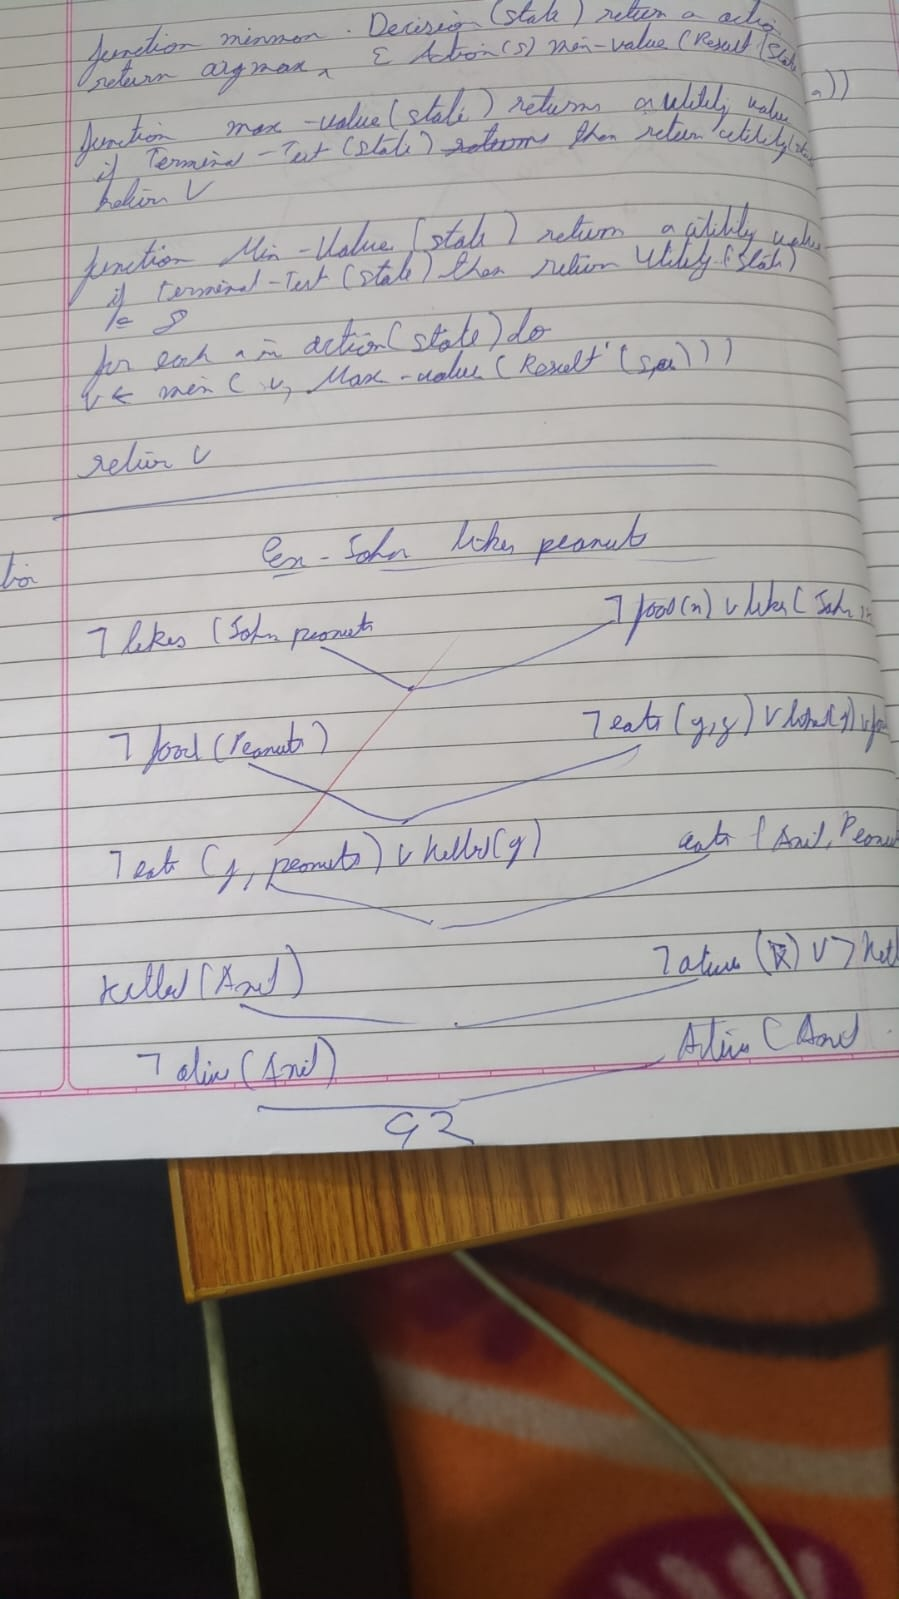 function minmax . Decision (state) return a action
return argmax a ∈ Action(s) min-value (Result (State a))
function max -value (state) returns a utility value
if Terminal-Test (state) then return utility (state
return V
function Min-Value (state) return a utility value
if terminal-Test (state) then return Utility (State)
for each a in action(state) do
V ← min ( v, Max-value (Result (s,a)))
return V
tion
Ex - John likes peanuts
ꓶ likes (John peanuts ꓶ food(x) V likes( John
ꓶ food (Peanuts) ꓶ eats (y,z) V killed(y) V
ꓶ eats (y, peanuts) V killed(y) eats (Anil, Peanu
killed (Anil) ꓶ alive (k) V ꓶ kill
ꓶ aliv (Anil) Alive (Anil